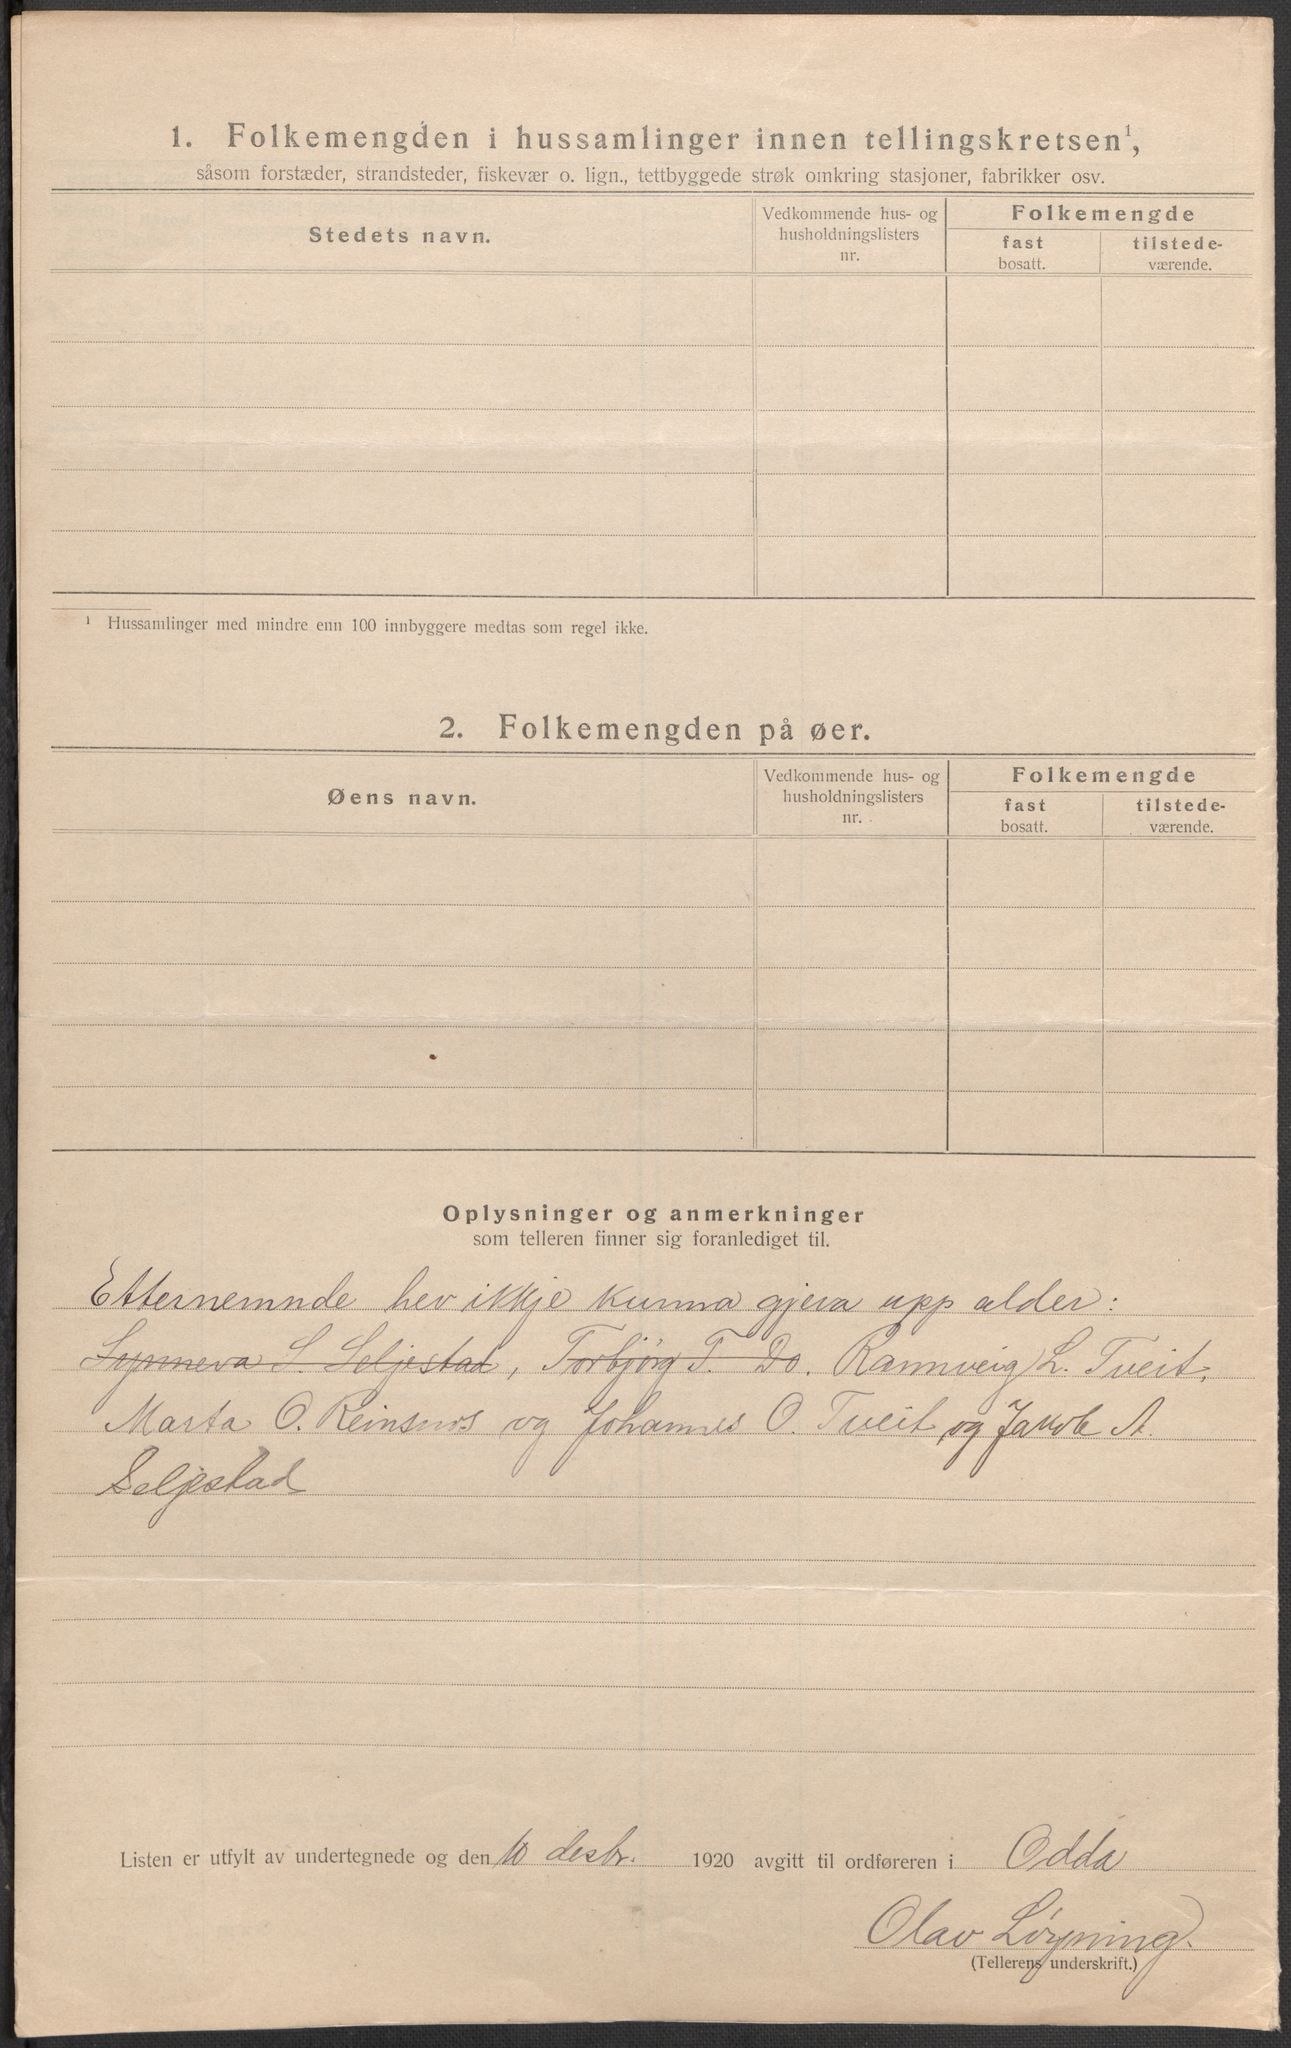 1. Folkemengden i hussamlinger innen tellingskretsen¹,
såsom forstæder, strandsteder, fiskevær o. lign., tettbyggede strøk omkring stasjoner, fabrikker osv.
Stedets navn.
Vedkommende hus- og
husholdningslisters
nr.
Folkemengde
fast
bosatt.
tilstede-
værende.
¹ Hussamlinger med mindre enn 100 innbyggere medtas som regel ikke.
2. Folkemengden på øer.
Øens navn.
Vedkommende hus- og
husholdningslisters
nr.
Folkemengde
fast
bosatt.
tilstede-
værende.
Oplysninger og anmerkninger
som telleren finner sig foranlediget til.
Etternemnde hev ikkje kunna gjeva upp alder:
Synneva S. Seljestad, Torbjørg T. Do. Rannveig L. Tveit,
Marta O. Reinsnos og Johannes O. Tveit og Jakob A.
Seljestad
Listen er utfylt av undertegnede og den 10 desbr. 1920 avgitt til ordføreren i Odda
Olav Løyning.
(Tellerens underskrift.)